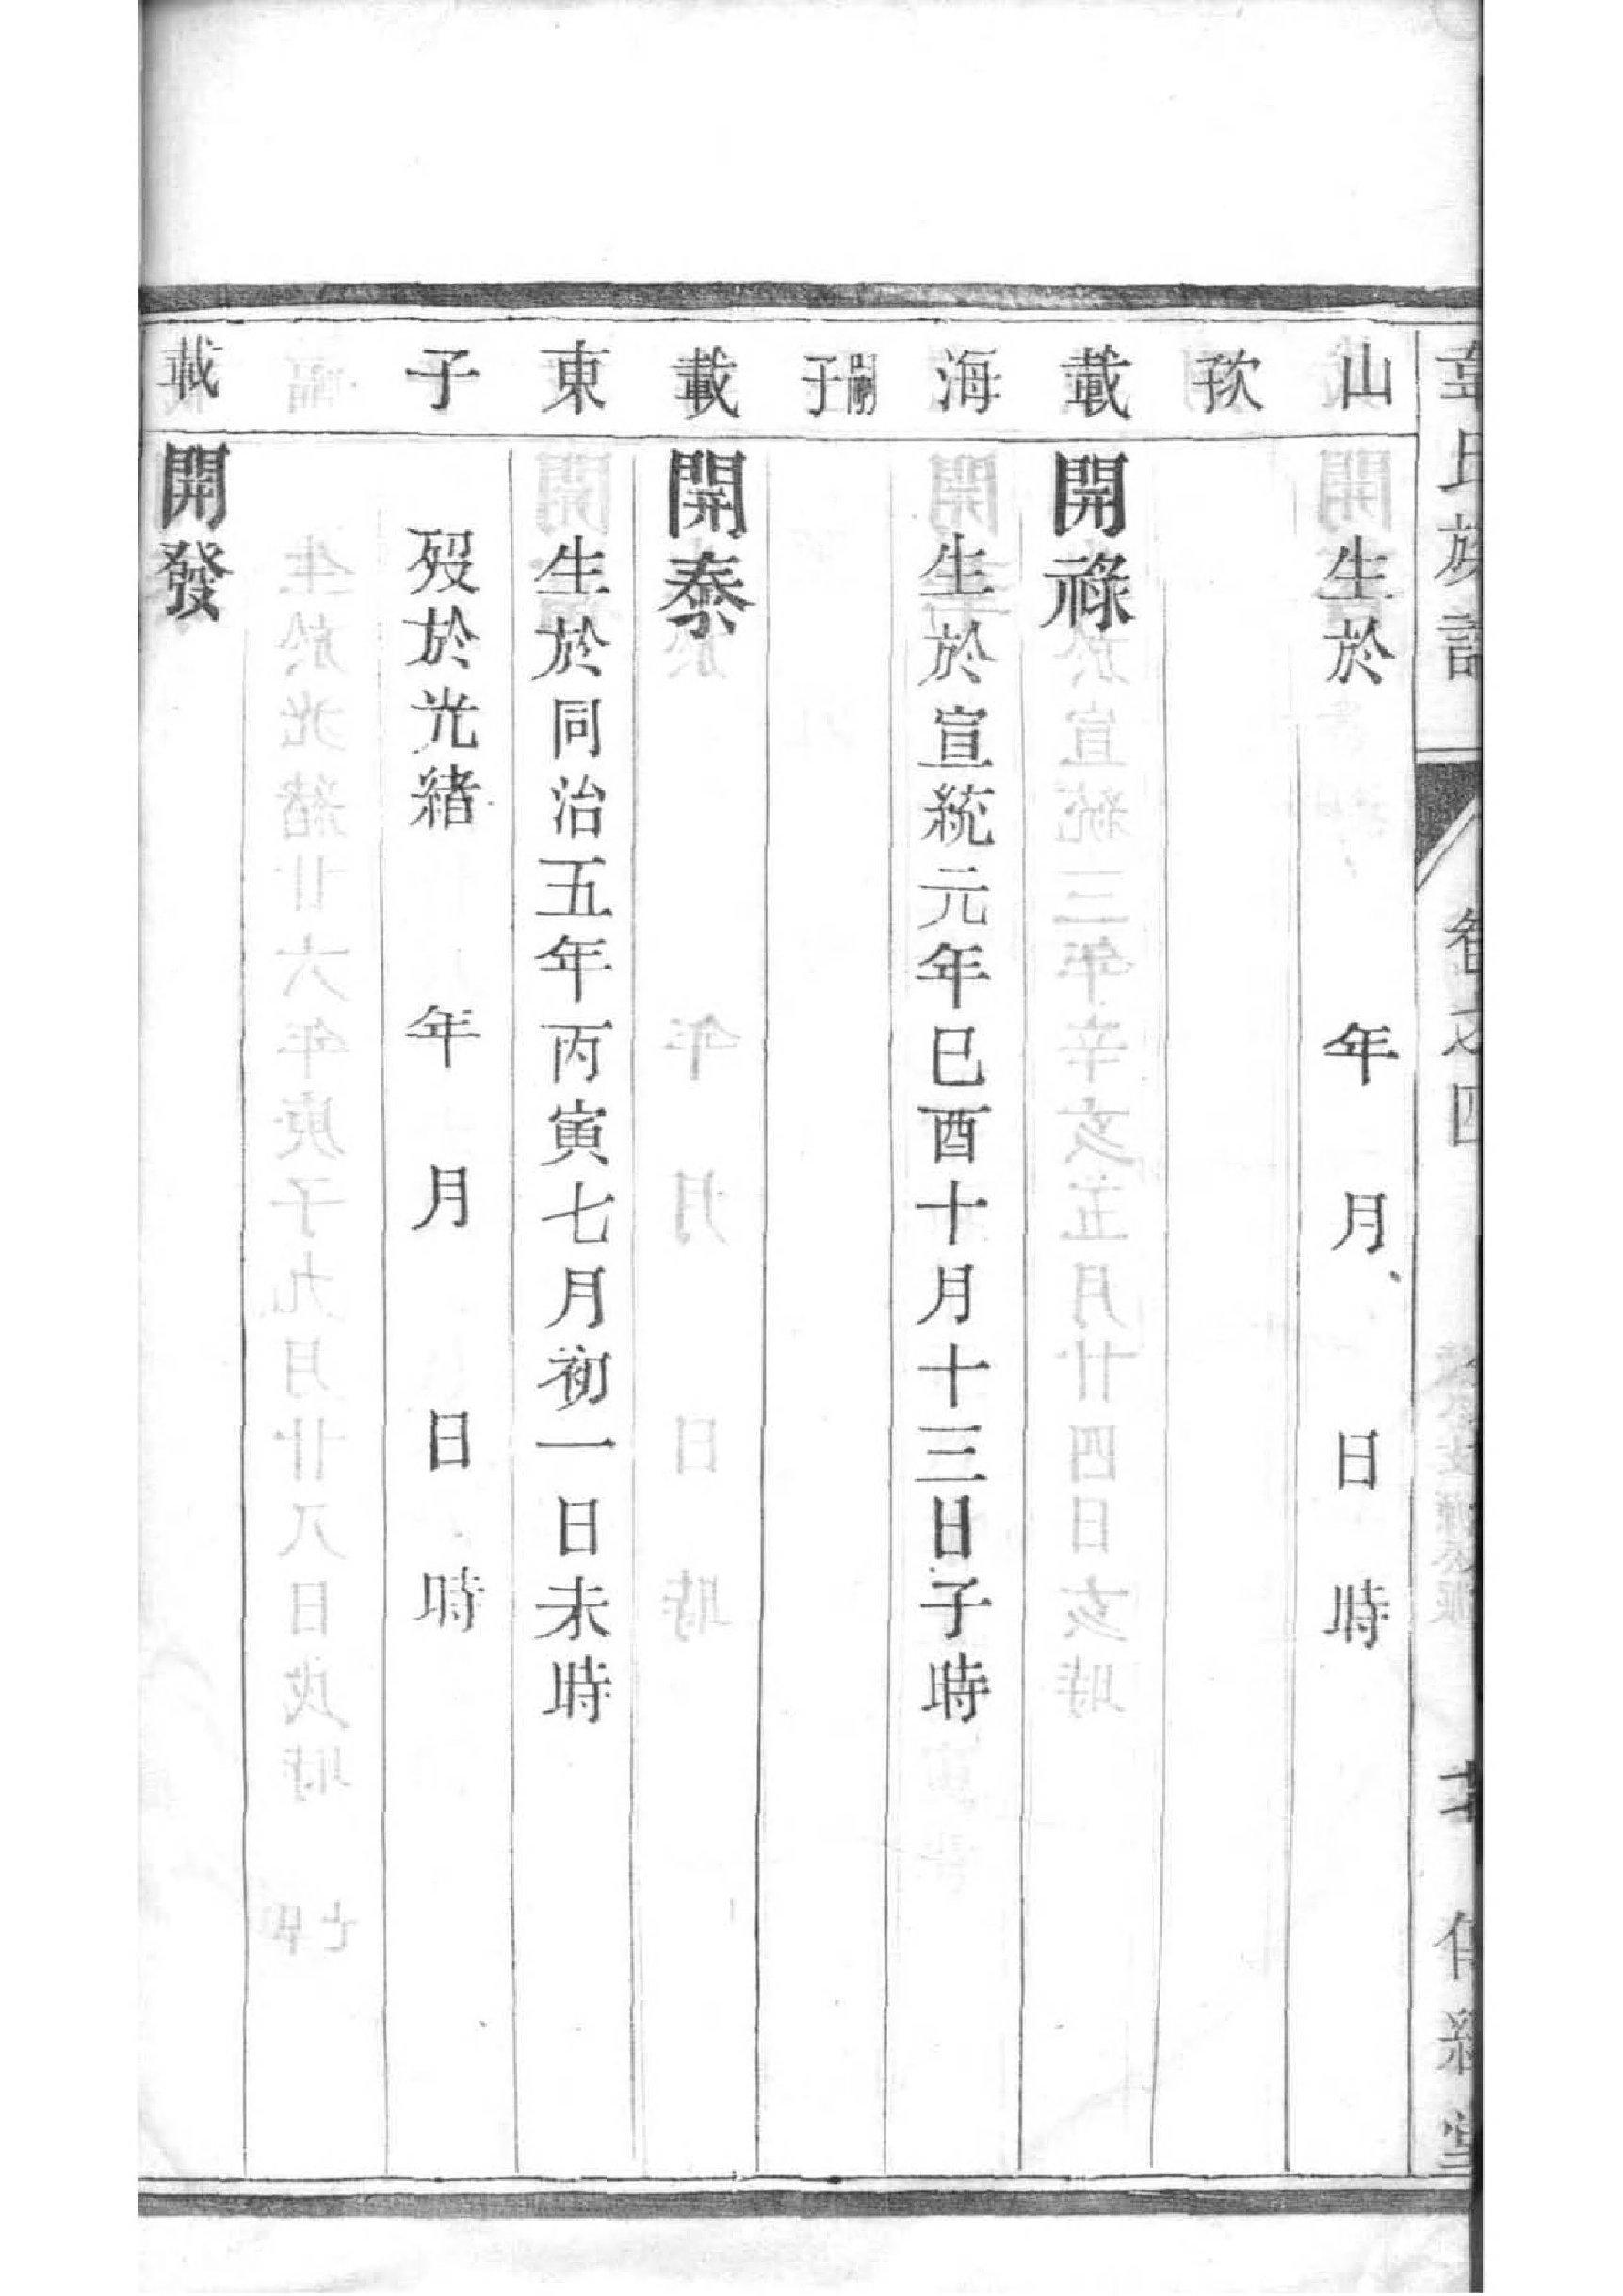 氏族譜 卷之四
山 生於 年 月 日 時
次
載 開祿
海 生於宣統元年巳酉十月十三日子時
嗣子
載 開泰
東 生於同治五年丙寅七月初一日未時
子 歿於光緒 年 月 日 時
載 開發